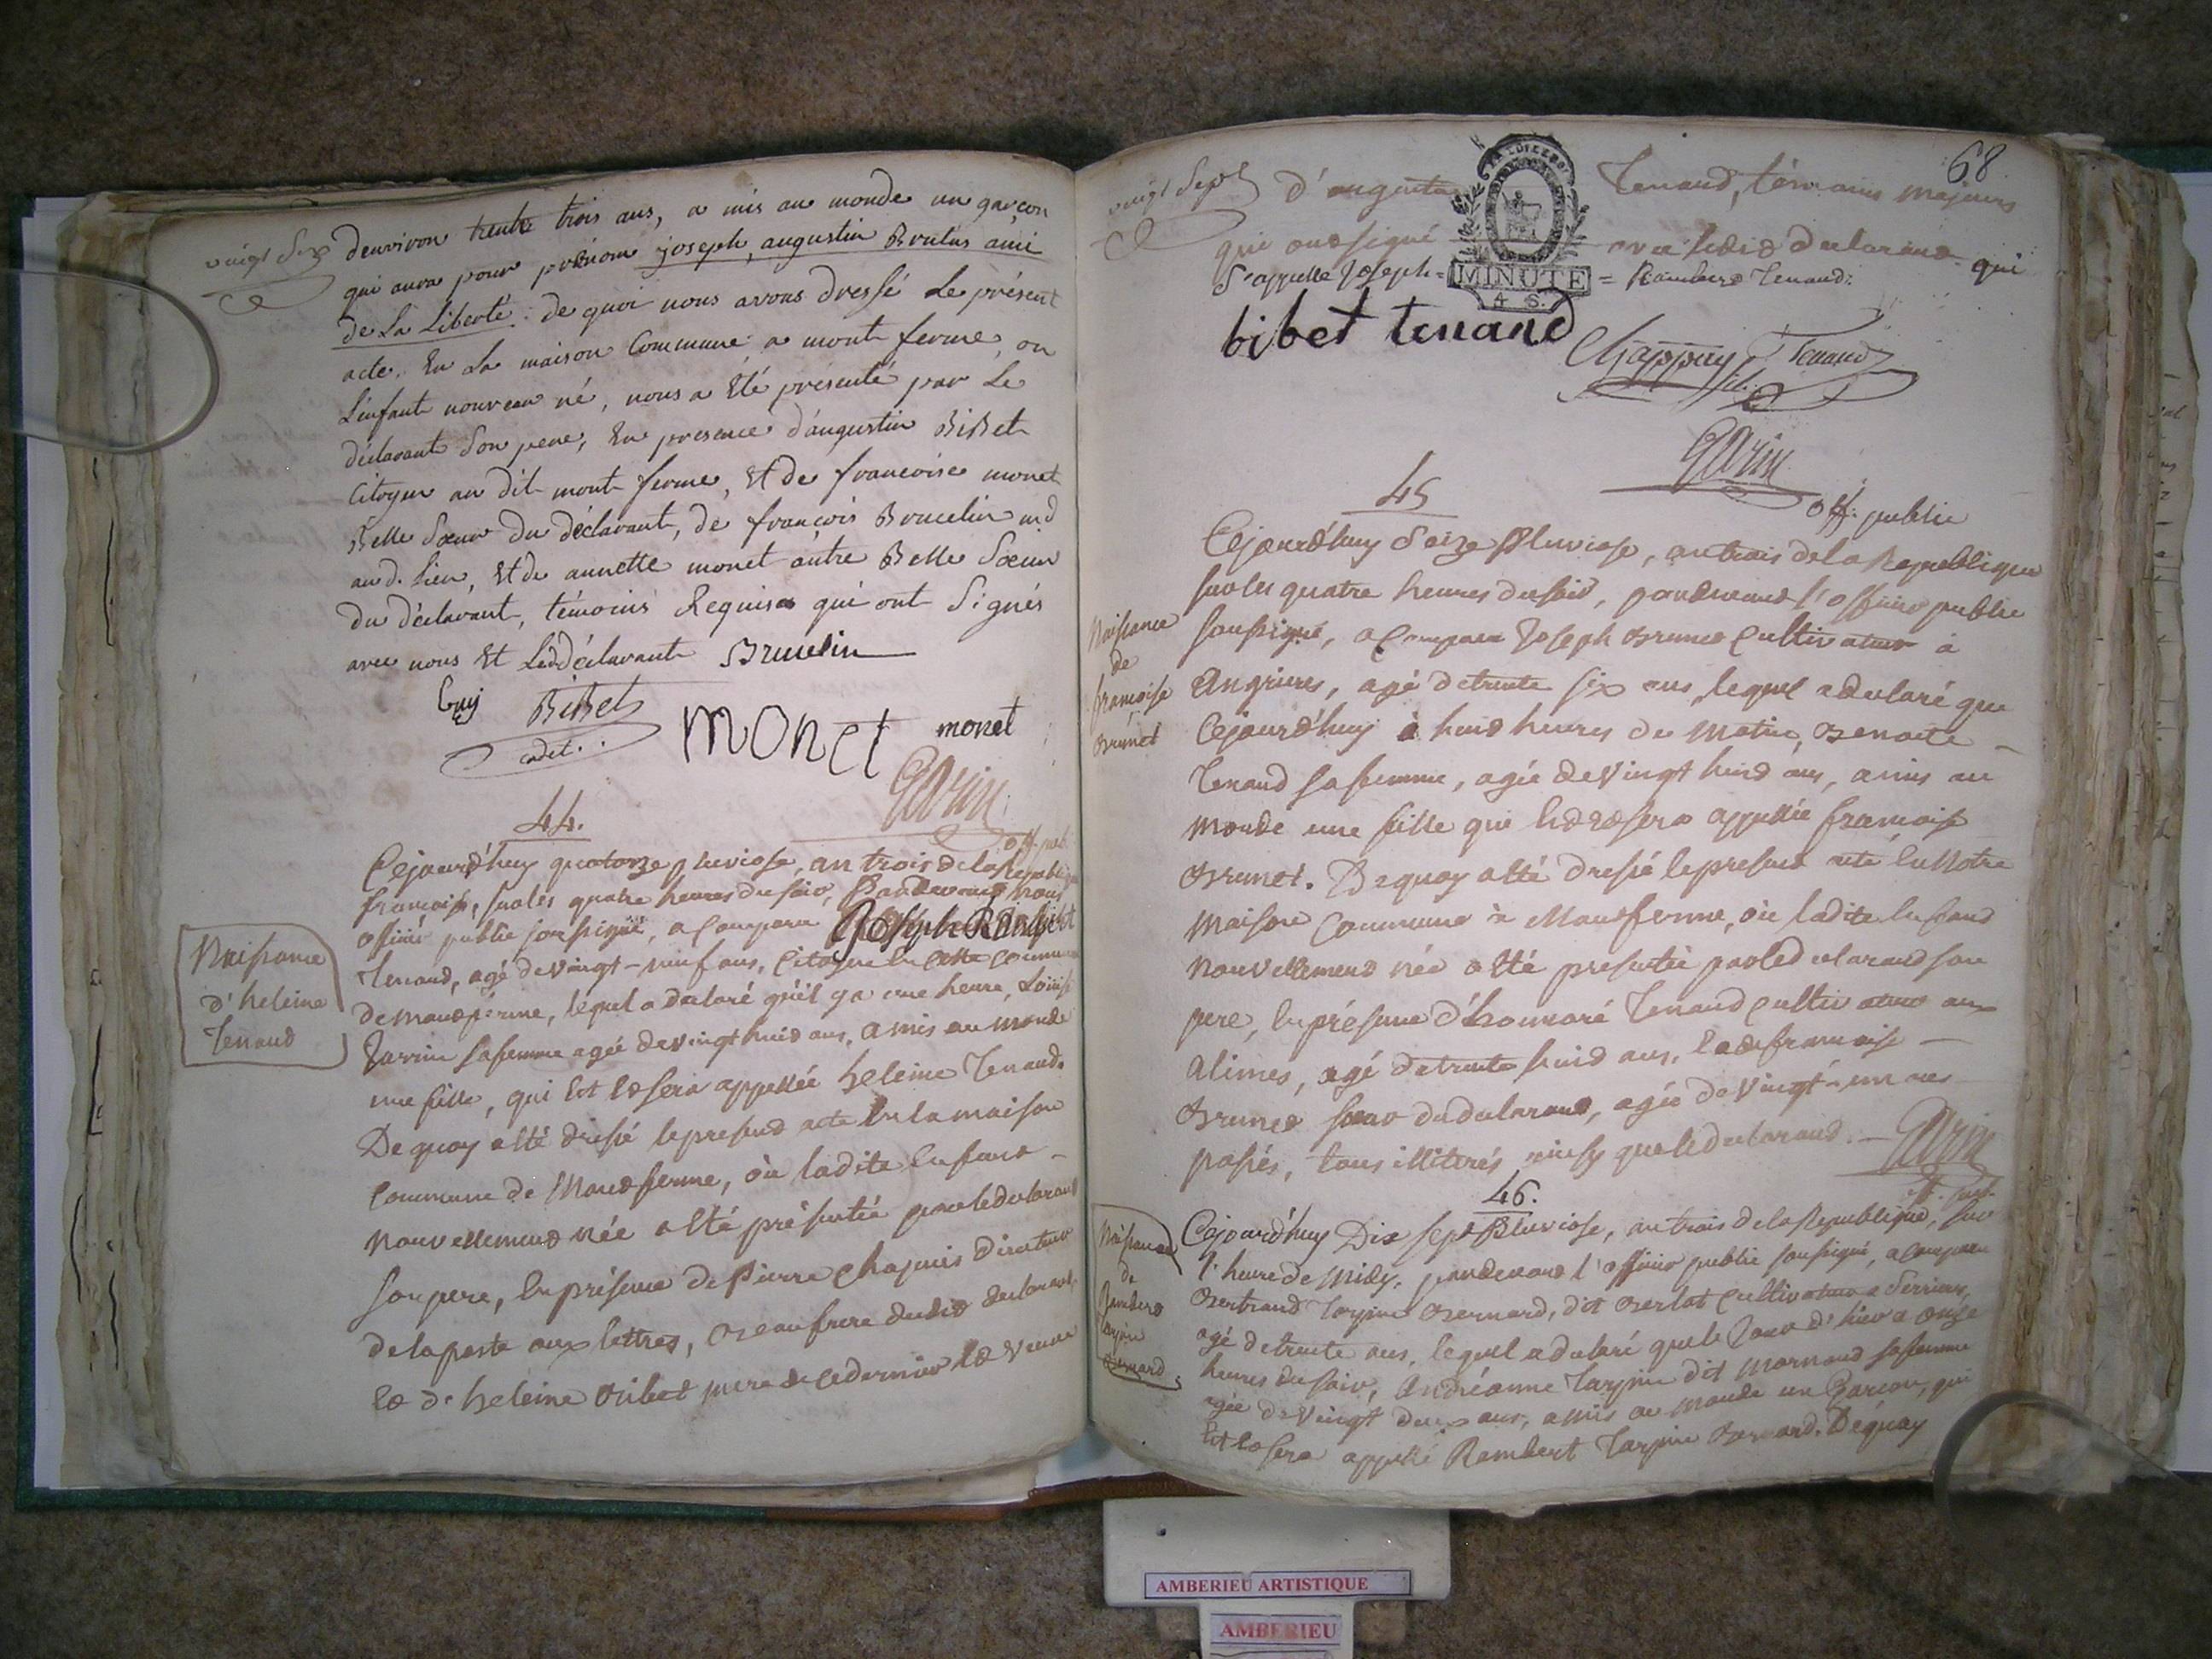 vingt six
denviron trente trois ans, a mis au monde un garçon
qui aura pour prénom joseph, augustin Brutus ami
de La Liberté : de quoi nous avons dressé Le présent
acte. En La maison Commune a mont ferme, ou
L'enfant nouveau né, nous a Eté présenté par Le
déclarant Son pere, En presence d'augustin BiBet
Citoyen au dit mont ferme, Et de francoise monet
Belle Sœur Du déclarant, de françois Brucelin md
aud. Lieu, Et de annette monet autre Belle Sœur
du déclarant, témoins Requises qui ont Signés
avec nous Et Ledd déclarant Brucelin
Guy BiBet
cadet.
monet monet
Garin
off. pub.
44.
Naissance
d'heleine
Tenand
Cejourd'huy quatorze pluviose, an trois de la Republique
francaise, sur les quatre heures du soir, Pardevant nous
officier public soussigné, a comparu Joseph Rambert
Tenand, agé de vingt-neuf ans, Citoyen en cette commune
de montferme, lequel a declaré qu'il y a une heure, Louise
Jarrin sa femme agée de vingt huit ans, a mis au monde
une fille, qui Est et sera appellée heleine Tenand.
De quoy a Eté dressé le present acte En la maison
Commune de Montferme, où ladite Enfant
nouvellement née a Eté présentée par le declarant
son pere, En présence de Pierre Chapuis Directeur
de la poste aux lettres, Beau frere dudit declarant,
Et de heleine Bibet mere de ce dernier Et veuve
vingt Sept
68
d'augustin Tenand, témoins majeurs
qui ont signé avec ledit declarant qui
s'appelle Joseph = = Rambert Tenand.
MINUTE
4 S.
bibet tenand
Chappuy Tenand
fils
Garin
off. public
45
Naissance
de
françoise
Brunet
Cejourd'huy Saize Pluviose, an trois de la Republique
sur les quatre heures du soir, pardevant l'officier public
soussigné, a Comparu Joseph Brunet Cultivateur à
Angrieres, agé de trente six ans, lequel a declaré que
Cejourd'huy à huit heures du Matin, Benoite
Tenand sa femme, agée de Vingt huit ans, a mis au
Monde une fille qui Est et sera appellée francoise
Brunet. De quoy a Eté dressé le present acte En Notre
Maison Commune à Montferme, où ladite Enfant
nouvellement née a Eté presentée par le declarant son
pere, En présence d'honnoré Tenand Cultivateur aux
Alimes, agé de trente huit ans, Et de francoise
Brunet sœur du declarant, agée de Vingt-un ans
passés, tous illiterés ainsy que le declarant. Garin
off. pub.
46.
Naissance
de
Rambert
Tarpin
Bernard
Cejourd'huy Dix sept Pluviose, an trois de la Republique, sur
l'heure de Midy, pardevant l'officier public soussigné, a comparu
Bertrand Tarpin Bernard, dit Berlot Cultivateur a
agé de trente ans, lequel a declaré que le Jour d'hier a onze
heures du soir, Andréanne Tarpin dit Mornand sa femme
agée de Vingt deux ans, a mis au monde un Garcon, qui
Est et sera appellé Rambert Tarpin Bernard. De quoy
AMBERIEU ARTISTIQUE
AMBERIEU